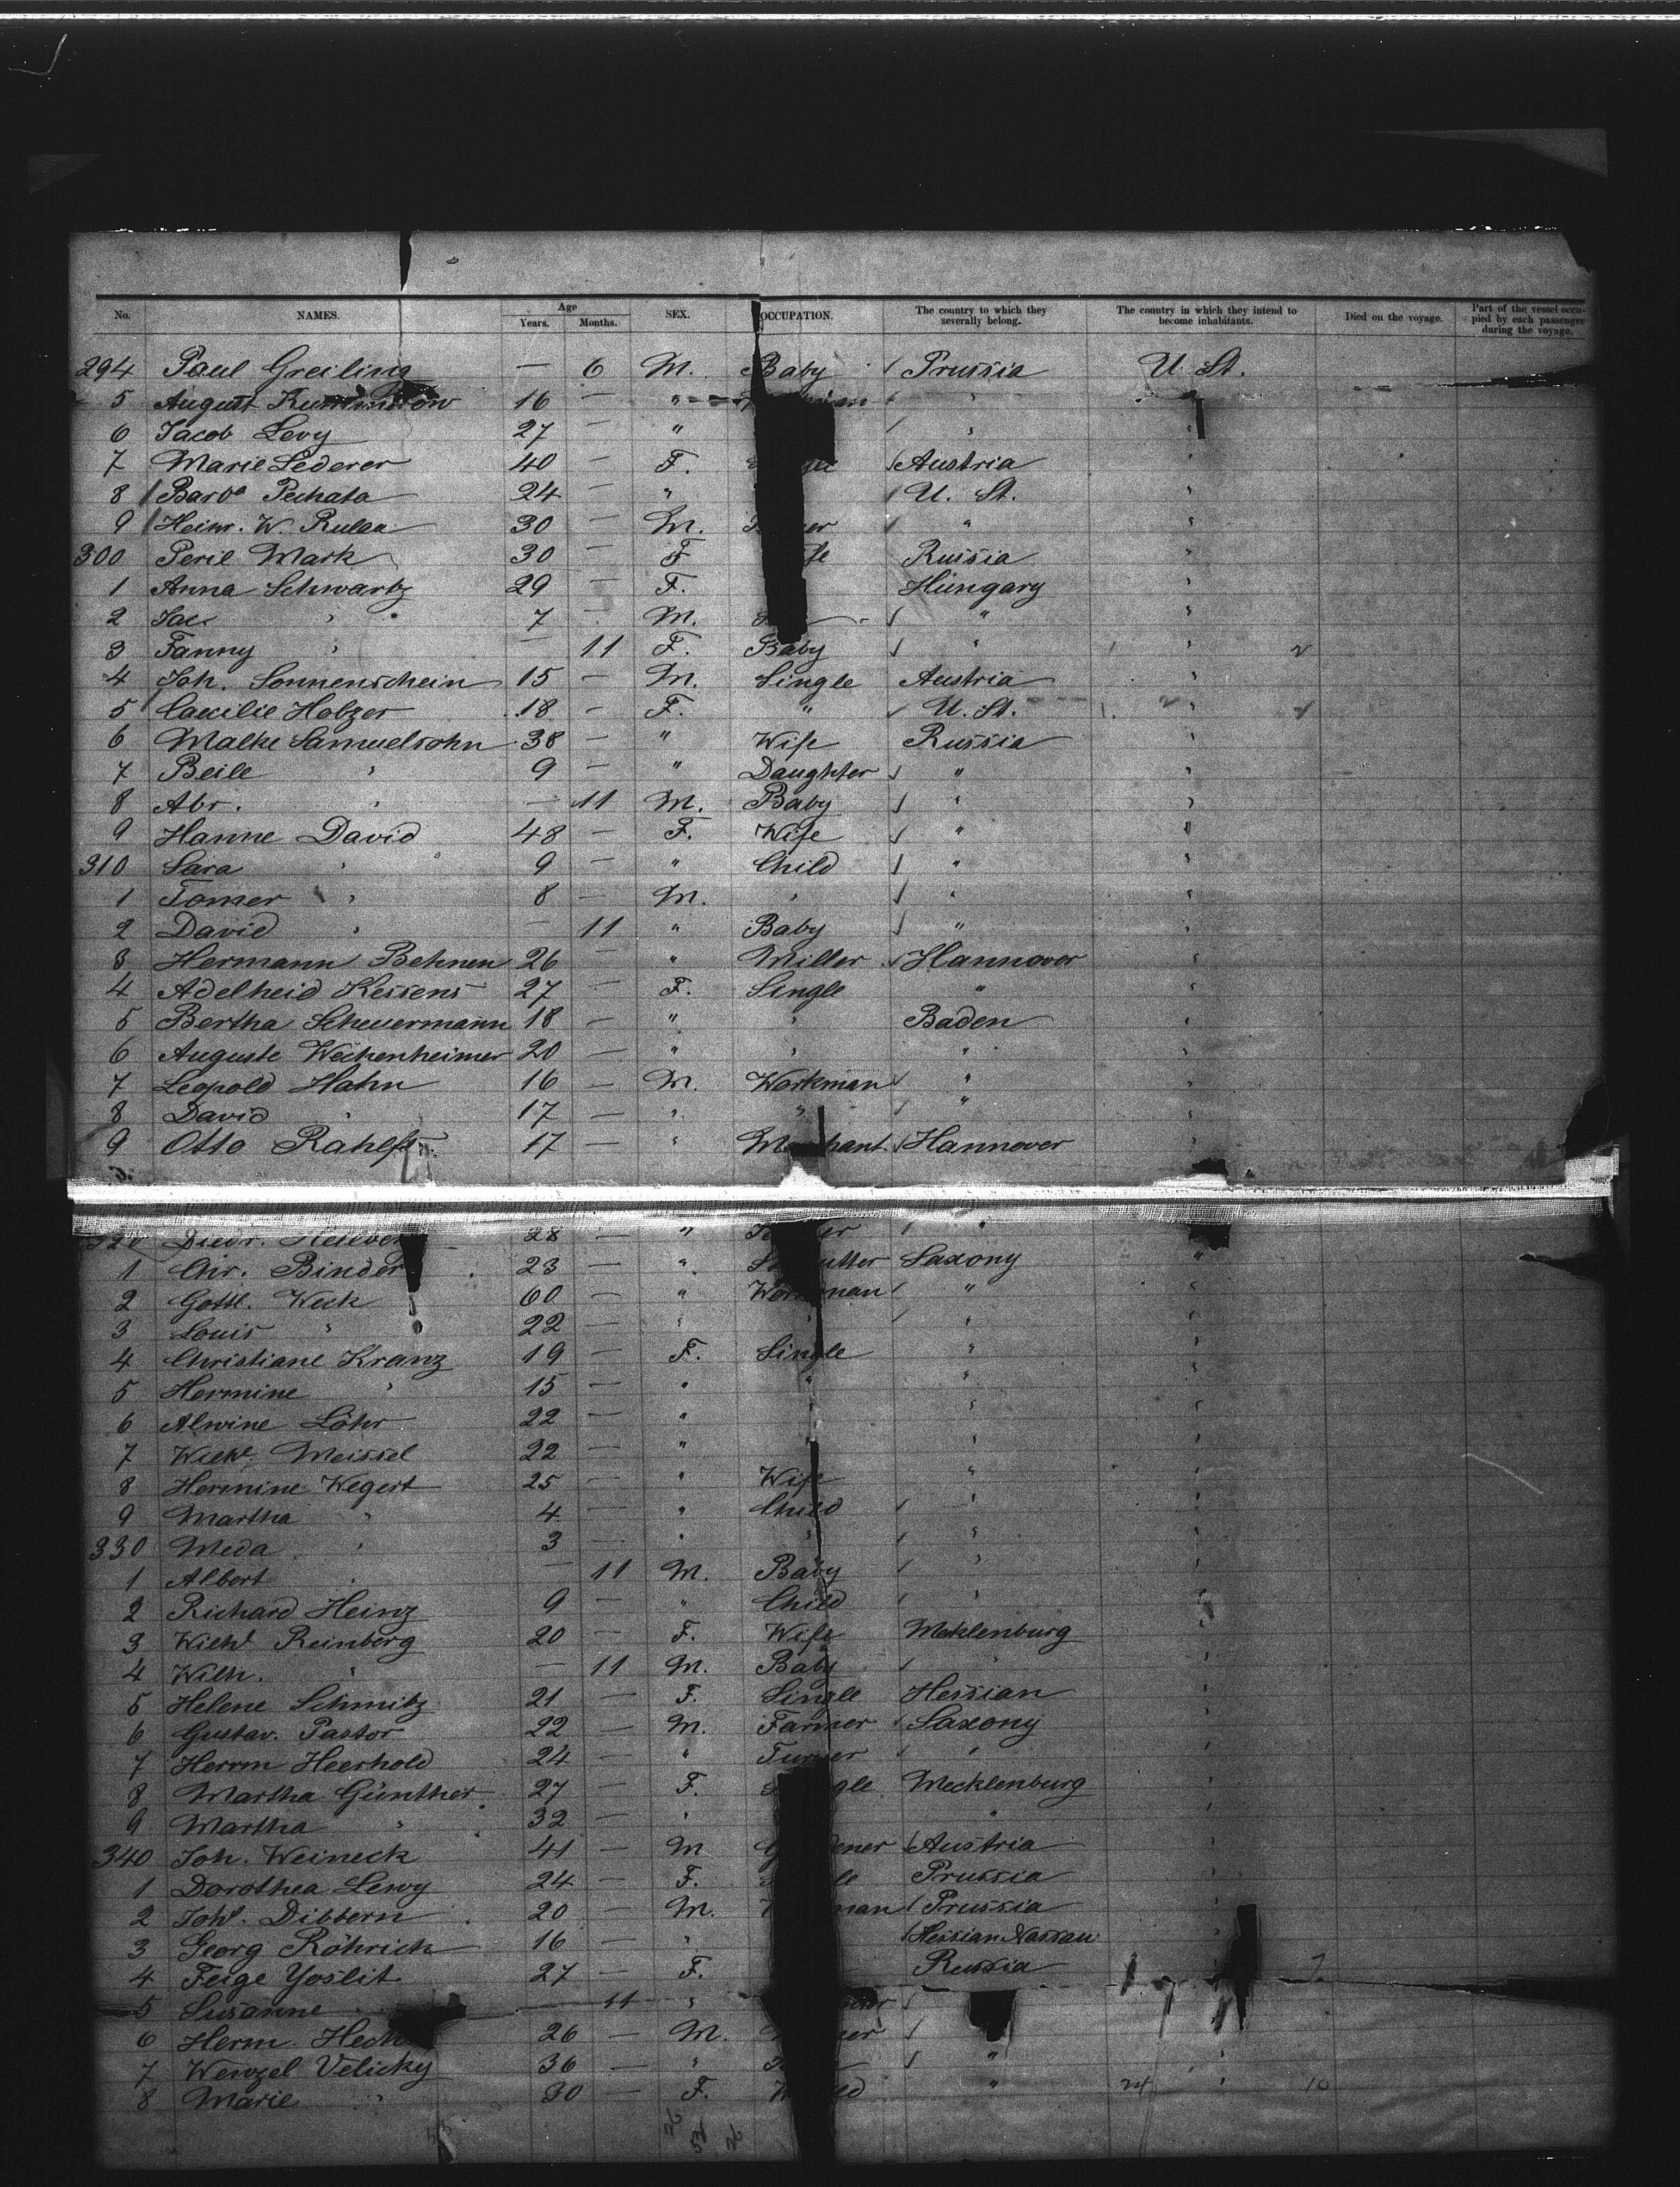 No. NAMES. Age Years. Months. SEX. OCCUPATION. The country to which they severally belong. The country in which they intend to become inhabitants. Died on the voyage. Part of the vessel occupied by each passenger during the voyage.
294 Paul Greiling — 6 M. Baby Prussia U. St.
5 August 16 — "
6 Jacob Levy 27 — " "
7 Marie Lederer 40 — F. Austria "
8 Barbª Pechata 24 — " U. St. "
9 Heinr. W. 30 — M. " "
300 Peril Mark 30 — F Russia "
1 Anna Schwartz 29 — F. Hungary "
2 Jac. " 7 — M. " "
3 Fanny " — 11 F. Baby " "
4 Joh. Sonnenschein 15 — M. Single Austria "
5 Caecilie Holzer 18 — F. " U. St. "
6 Malke Samuelsohn 38 — " Wife Russia "
7 Beile " 9 — " Daughter " "
8 Abr. " — 11 M. Baby " "
9 Hanne David 48 — F. Wife " "
310 Sara " 9 — " Child " "
1 Tomer " 8 — M. " " "
2 David " — 11 " Baby " "
3 Hermann Behnen 26 — " Miller Hannover "
4 Adelheid Kessens 27 — F. Single " "
5 Bertha Scheuermann 18 — " " Baden "
6 Auguste Weckenheimer 20 — " " " "
7 Leopold Hahn 16 — M. Workman " "
8 David " 17 — " " " "
9 Otto Rahlfs 17 — " Merchant Hannover "
320 Diedr. 28 — " "
1 Chr. Binder 23 — " Saxony "
2 Gottl. Weck 60 — " Workman " "
3 Louis " 22 — " " " "
4 Christiane Kranz 19 — F. Single " "
5 Hermine " 15 — " " " "
6 Alwine Löhr 22 — " " " "
7 Wilhᵉ Meissel 22 — " " " "
8 Hermine Wegert 25 — " Wife " "
9 Martha " 4 — " Child " "
330 Meda " 3 — " " " "
1 Albert " — 11 M. Baby " "
2 Richard Heinz 9 — " Child " "
3 Wilhᵉ Reinberg 20 — F. Wife Meklenburg "
4 Wilh. " — 11 M. Baby " "
5 Helene Schmitz 21 — F. Single Hessian "
6 Gustav. Pastor 22 — M. Farmer Saxony "
7 Herrm Heerhold 24 — " Turner " "
8 Martha Günther 27 — F. Single Mecklenburg "
9 Martha " 32 — " " "
340 Joh. Weineck 41 — M Gardener Austria "
1 Dorothea Lewy 24 — F. Prussia "
2 Johˢ. Dibbern 20 — M. Prussia "
3 Georg Röhrich 16 — " Hessian Nassau "
4 Feige Yoslit 27 — F. Russia
5 Susanne " — 11 "
6 Herm Hech 26 — M.
7 Wenzel Velicky 36 — " " "
8 Marie " 30 — F. " 24 " 10